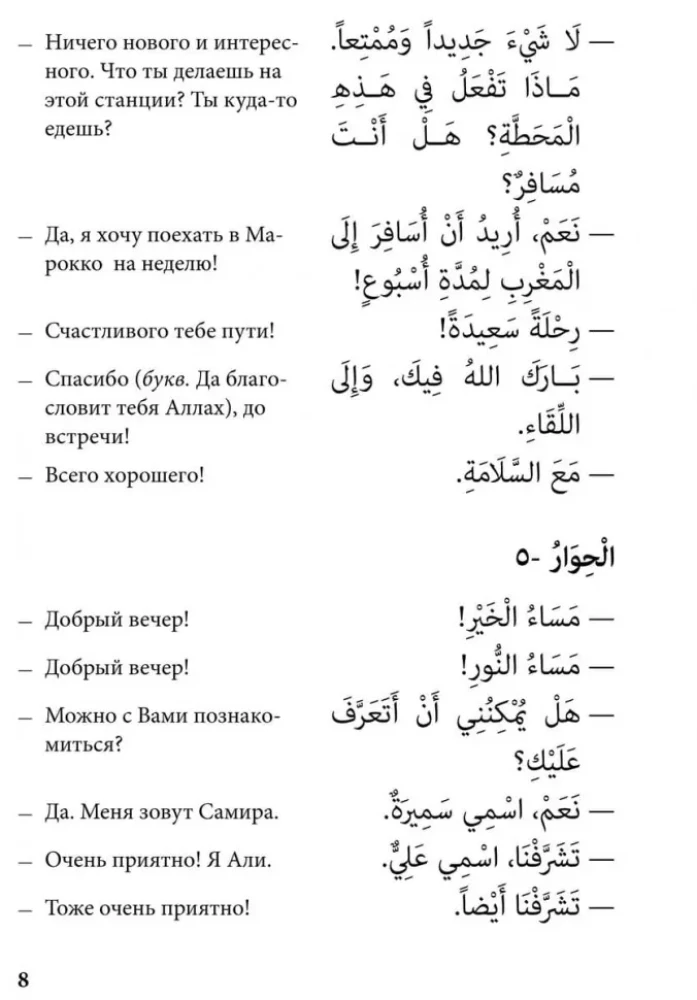 — Ничего нового и интерес-
ного. Что ты делаешь на
этой станции? Ты куда-то
едешь?
— لَا شَيْءَ جَدِيداً وَمُمْتِعاً.
مَـاذَا تَفْعَلُ فِي هَـذِهِ
الْمَحَطَّةِ؟ هَـلْ أَنْـتَ
مُسَافِرٌ؟
— Да, я хочу поехать в Ма-
рокко на неделю!
— نَعَمْ، أُرِيدُ أَنْ أُسَافِرَ إِلَى
الْمَغْرِبِ لِمُدَّةِ أُسْبُوعٍ!
— Счастливого тебе пути!
— رِحْلَةً سَعِيدَةً!
— Спасибо (букв. Да благо-
словит тебя Аллах), до
встречи!
— بَـارَكَ اللهُ فِيكَ، وَإِلَى
اللِّقَاءِ.
— Всего хорошего!
— مَعَ السَّلَامَةِ.
الْحِوَارُ -٥
— Добрый вечер!
— مَسَاءُ الْخَيْرِ!
— Добрый вечер!
— مَسَاءُ النُّورِ!
— Можно с Вами познако-
миться?
— هَلْ يُمْكِنُنِي أَنْ أَتَعَرَّفَ
عَلَيْكِ؟
— Да. Меня зовут Самира.
— نَعَمْ، اسْمِي سَمِيرَةٌ.
— Очень приятно! Я Али.
— تَشَرَّفْنَا، اسْمِي عَلِيٌّ.
— Тоже очень приятно!
— تَشَرَّفْنَا أَيْضاً.
8